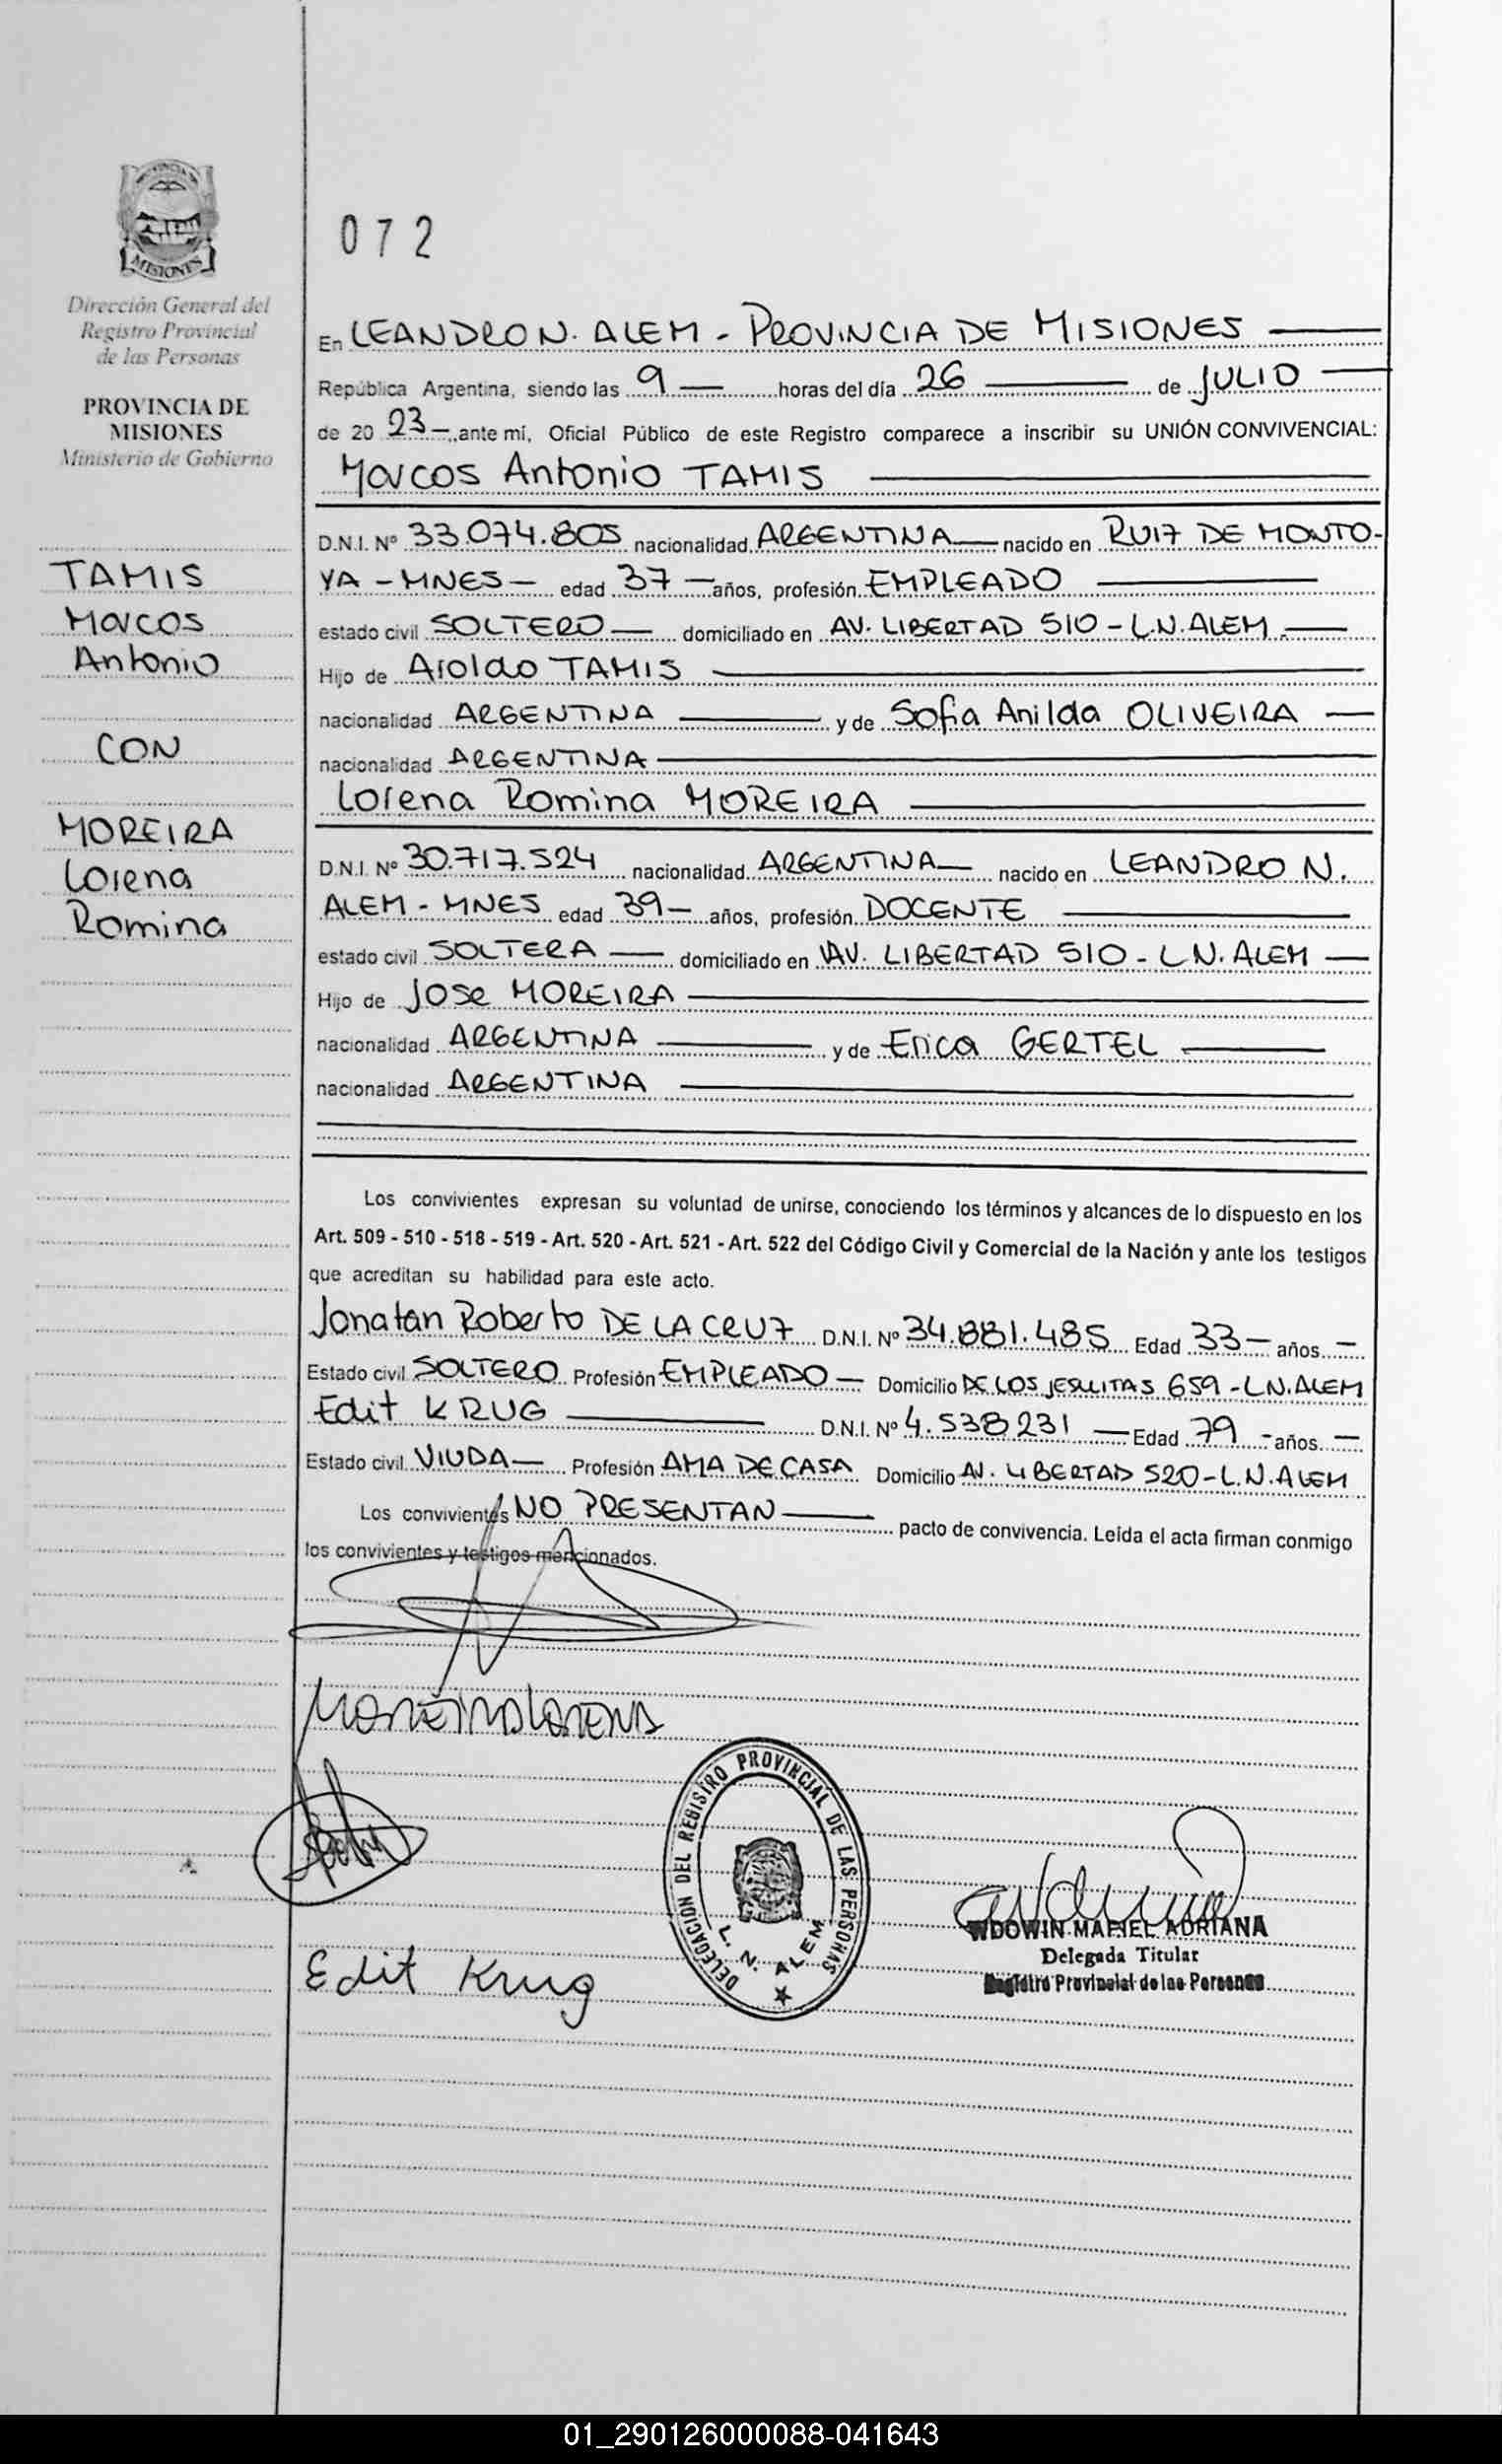 PROVINCIA DE
MISIONES
Dirección General del
Registro Provincial
de las Personas
PROVINCIA DE
MISIONES
Ministerio de Gobierno
TAMIS
Marcos
Antonio
CON
MOREIRA
Lorena
Romina
072
En LEANDRO N. ALEM - PROVINCIA DE MISIONES
República Argentina, siendo las 9 horas del día 26 de JULIO
de 20 23 ante mí, Oficial Público de este Registro comparece a inscribir su UNIÓN CONVIVENCIAL:
Marcos Antonio TAMIS
D.N.I. Nº 33.074.805 nacionalidad ARGENTINA nacido en RUIZ DE MONTO-
YA - MNES - edad 37 años, profesión EMPLEADO
estado civil SOLTERO domiciliado en AV. LIBERTAD 510 - L.N. ALEM
Hijo de Aroldo TAMIS
nacionalidad ARGENTINA y de Sofia Anilda OLIVEIRA
nacionalidad ARGENTINA
Lorena Romina MOREIRA
D.N.I. Nº 30.717.524 nacionalidad ARGENTINA nacido en LEANDRO N.
ALEM - MNES edad 39 años, profesión DOCENTE
estado civil SOLTERA domiciliado en AV. LIBERTAD 510 - L.N. ALEM
Hijo de Jose MOREIRA
nacionalidad ARGENTINA y de Erica GERTEL
nacionalidad ARGENTINA
Los convivientes expresan su voluntad de unirse, conociendo los términos y alcances de lo dispuesto en los
Art. 509 - 510 - 518 - 519 - Art. 520 - Art. 521 - Art. 522 del Código Civil y Comercial de la Nación y ante los testigos
que acreditan su habilidad para este acto.
Jonatan Roberto DE LA CRUZ D.N.I. Nº 34.881.485 Edad 33 años
Estado civil SOLTERO Profesión EMPLEADO Domicilio DE LOS JESUITAS 659 - L.N. ALEM
Edit KRUG D.N.I. Nº 4.538231 Edad 79 años
Estado civil VIUDA Profesión AMA DE CASA Domicilio AV. LIBERTAD 520 - L.N. ALEM
Los convivientes NO PRESENTAN pacto de convivencia. Leída el acta firman conmigo
los convivientes y testigos mencionados.
MOREIRA LORENA
DELEGACION DEL REGISTRO PROVINCIAL DE LAS PERSONAS
L. N. ALEM
WDOWIN MARIEL ADRIANA
Delegada Titular
Registro Provincial de las Personas
Edit Krug
01_290126000088-041643